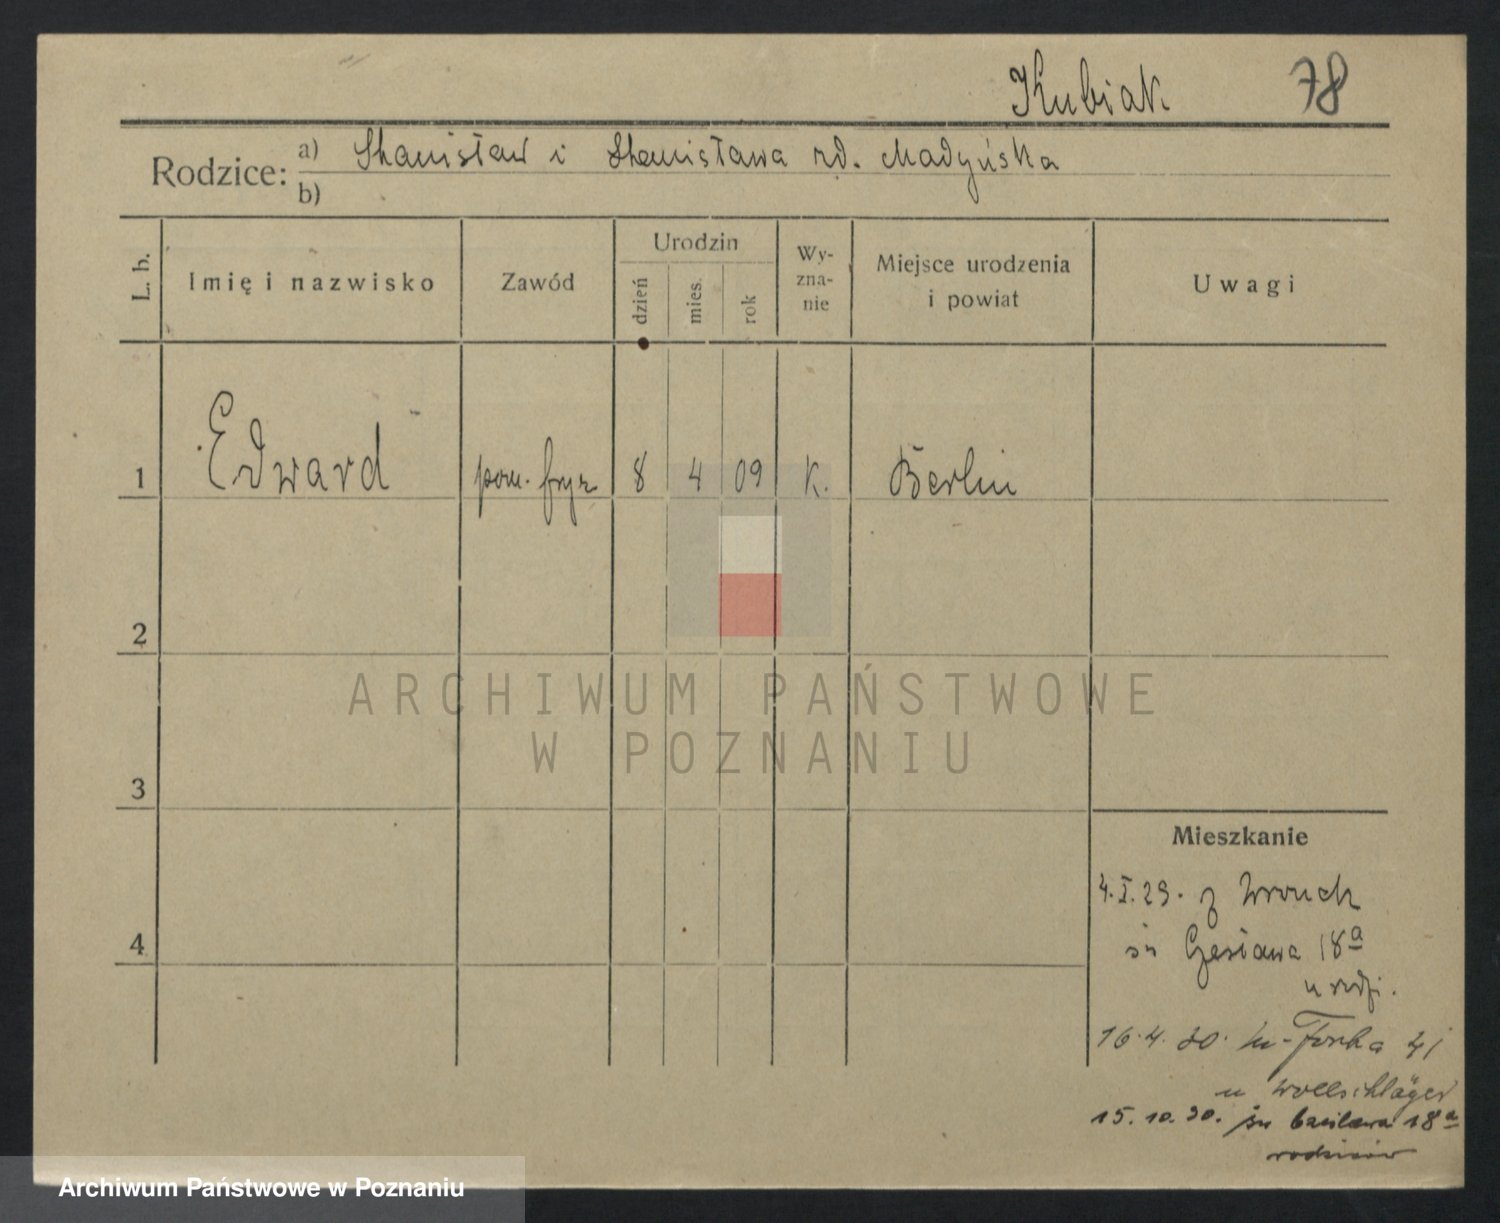 Kubiak. 78
Rodzice: a) Stanisław i Stanisława rd. Madyńska
b)
L. b. Imię i nazwisko Zawód Urodzin dzień mies. rok Wy-zna-nie Miejsce urodzenia i powiat Uwagi
1 Edward pom. fryz 8 4 09 K. Berlin
2
ARCHIWUM PAŃSTWOWE
W POZNANIU
3
Mieszkanie
4.I.29. z Wronek
4
Czesława 18a
u rodzi.
16.4.30. 41
u Wollschläger
15.10.30. 18a
rodziców
Archiwum Państwowe w Poznaniu